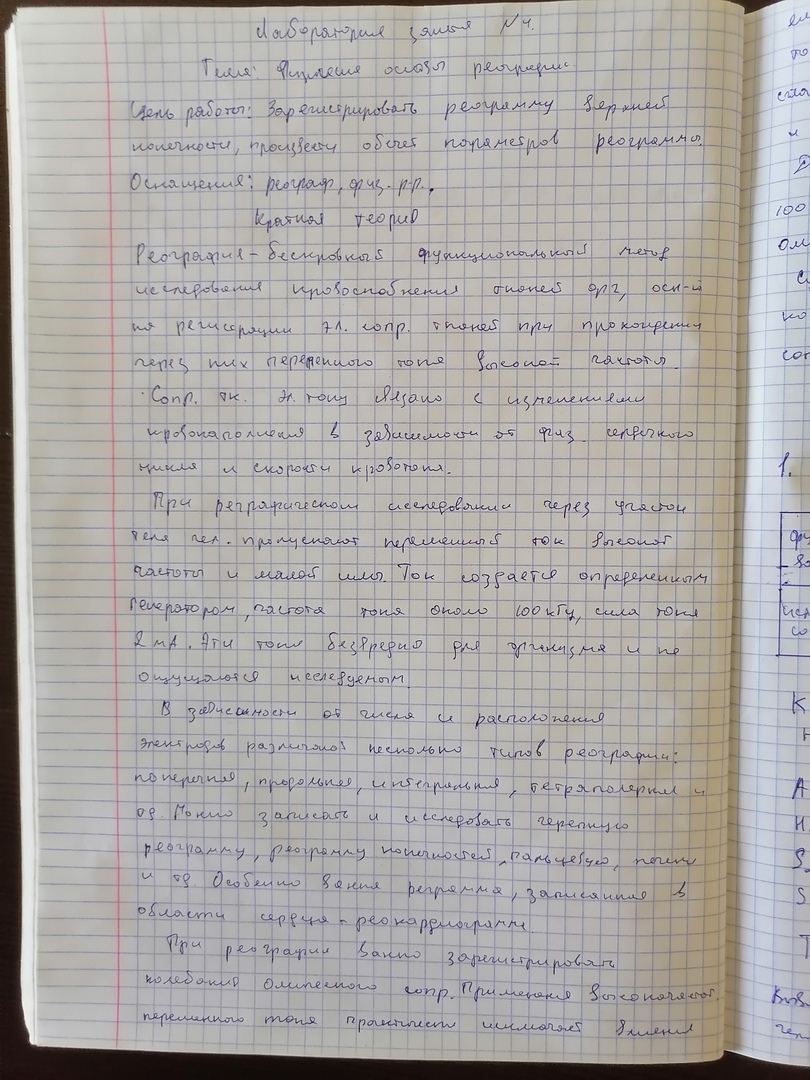 Лабораторная занятие №4.
Тема: Физические основы реографии
Цель работы: Зарегистрировать реограмму верхней
конечности, произвести обсчет параметров реограммы.
Оснащения: реограф, физ. р-р.
Краткая теория
Реография - бескровный функциональный метод
исследования кровоснабжения тканей орг, осн-й
на регистрации эл. сопр. тканей при прохождении
через них переменного тока высокой частоты.
Сопр. тк. эл. току связано с изменениями
кровонаполнения в зависимости от фаз сердечного
цикла и скорости кровотока.
При реографическом исследовании через участки
тела чел. пропускают переменный ток высокой
частоты и малой силы. Ток создается определенным
генератором, частота тока около 100 кГц, сила тока
2 мА. Эти токи безвредно для организма и не
ощущаются исследуемым.
В зависимости от числа и расположения
электродов различают несколько типов реографии:
поперечная, продольная, интегральная, тетраполярная и
тд. Можно записать и исследовать черепную
реограмму, реограмму конечностей, пальцевую, печени
и тд. Особенно важна реграмма, записанная в
области сердца - реокардиограмма.
При реографии важно зарегистрировать
колебания омического сопр. Применения высокочастот.
переменного тока практически исключает влияния
то
и
100
Ом
1.
К
А
S
Т